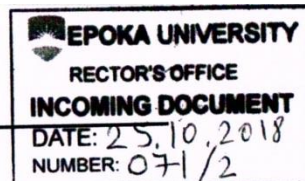 EPOKA UNIVERSITY
RECTOR'S OFFICE
INCOMING DOCUMENT
DATE: 25.10.2018
NUMBER: 071/2